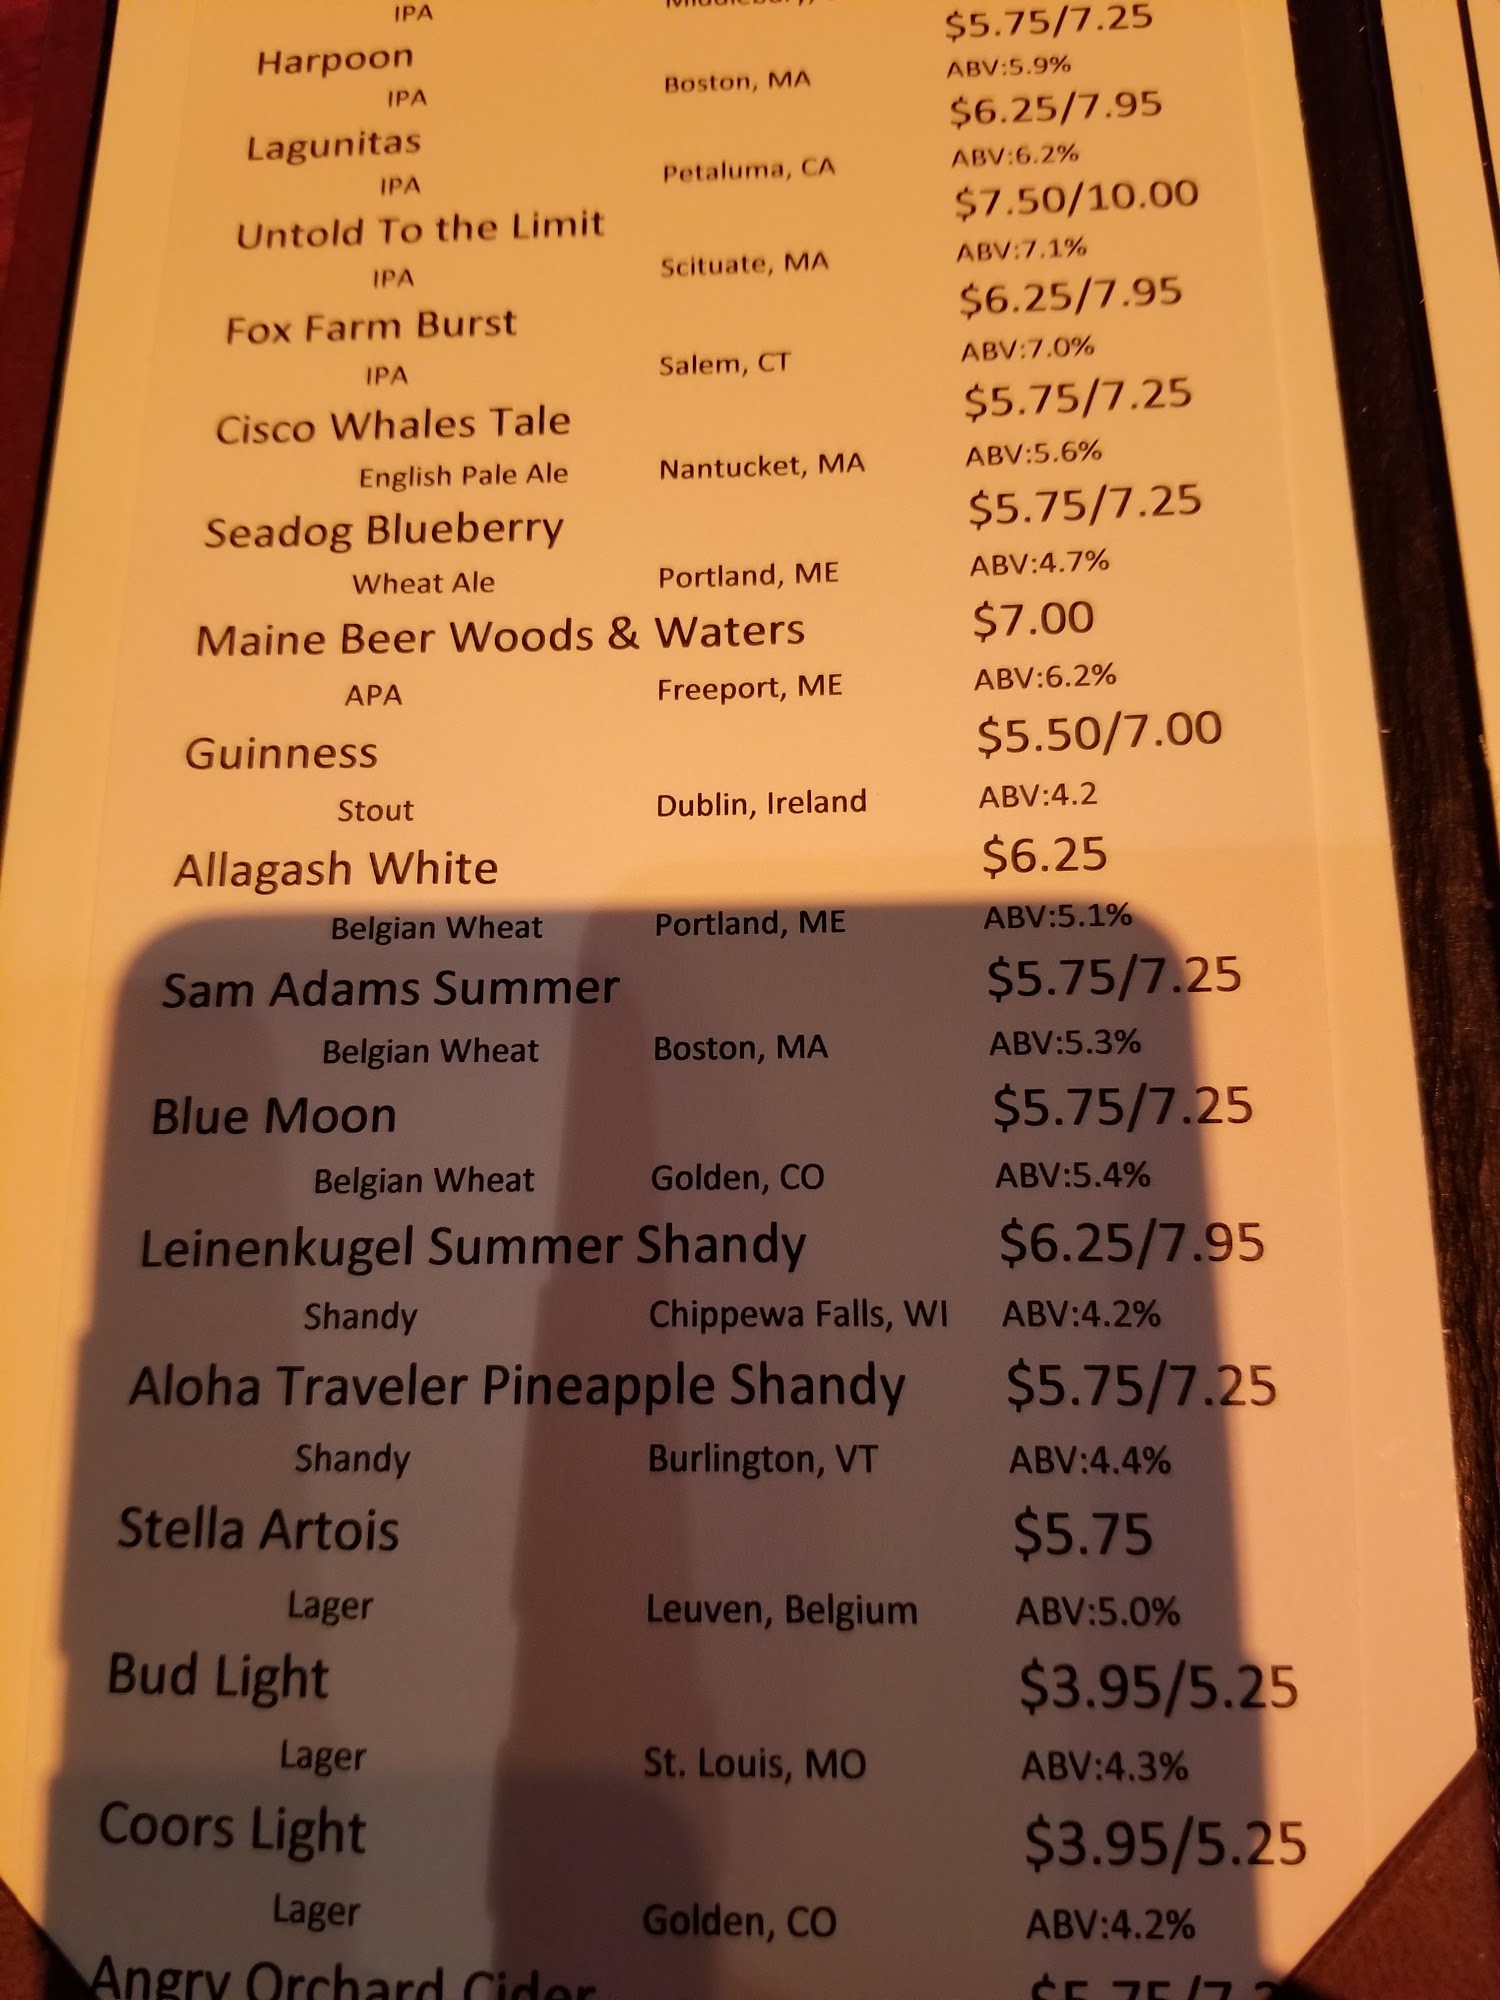 IPA
$5.75/7.25
Harpoon
ABV:5.9%
IPA Boston, MA
$6.25/7.95
Lagunitas
ABV:6.2%
IPA Petaluma, CA
$7.50/10.00
Untold To the Limit
ABV:7.1%
IPA Scituate, MA
$6.25/7.95
Fox Farm Burst
ABV:7.0%
IPA Salem, CT
$5.75/7.25
Cisco Whales Tale
English Pale Ale Nantucket, MA ABV:5.6%
Seadog Blueberry $5.75/7.25
Wheat Ale Portland, ME ABV:4.7%
Maine Beer Woods & Waters $7.00
APA Freeport, ME ABV:6.2%
Guinness $5.50/7.00
Stout Dublin, Ireland ABV:4.2
Allagash White $6.25
Belgian Wheat Portland, ME ABV:5.1%
Sam Adams Summer $5.75/7.25
Belgian Wheat Boston, MA ABV:5.3%
Blue Moon $5.75/7.25
Belgian Wheat Golden, CO ABV:5.4%
Leinenkugel Summer Shandy $6.25/7.95
Shandy Chippewa Falls, WI ABV:4.2%
Aloha Traveler Pineapple Shandy $5.75/7.25
Shandy Burlington, VT ABV:4.4%
Stella Artois $5.75
Lager Leuven, Belgium ABV:5.0%
Bud Light $3.95/5.25
Lager St. Louis, MO ABV:4.3%
Coors Light $3.95/5.25
Lager Golden, CO ABV:4.2%
Angry Orchard Cider